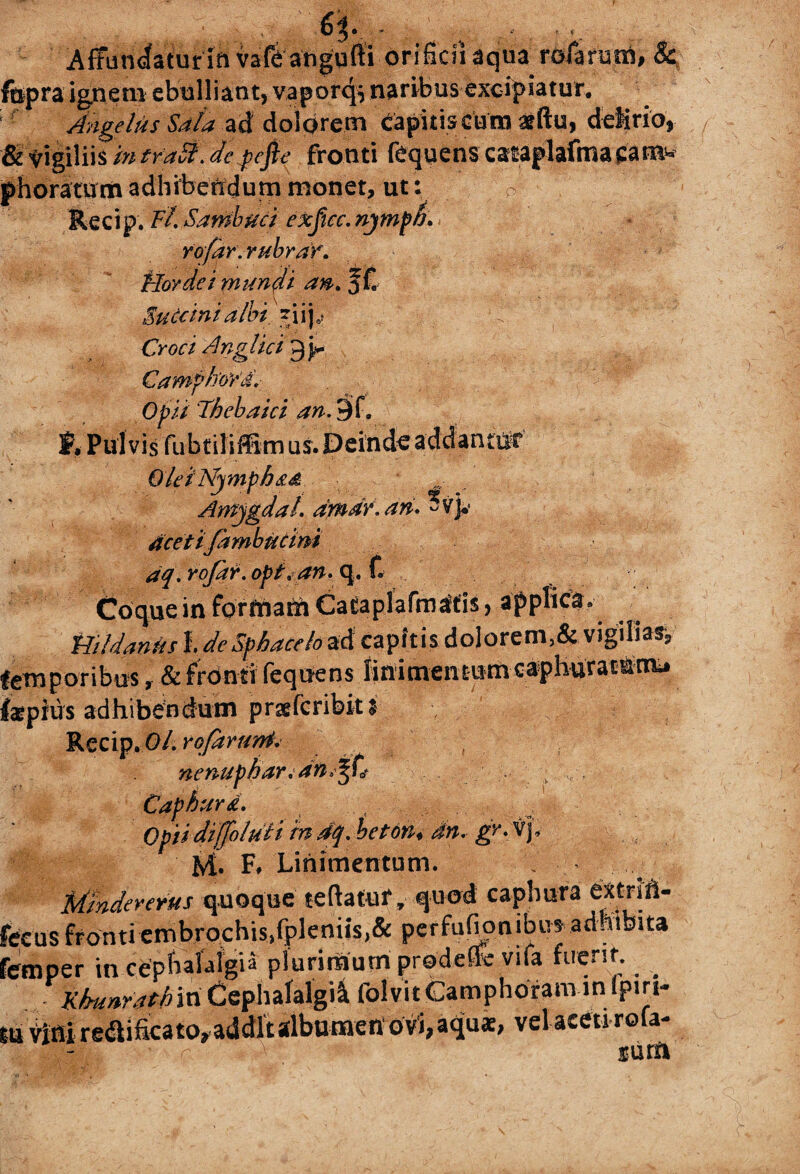 63.
Affundatur in vaſe anguſti orificii aqua roſarum, &
ſupra ignem ebulliant, vaporq; naribus excipiatur.
Angelus Sala ad dolorem capitis cum æſtu, delirio,
& vigiliis in tract. de peſte fronti ſequens cataplaſma cam-
phoratum adhibendum monet, ut:
Recip. Fl. Sambuci exſicc. nymph.
roſar. rubrar.
Hordei mundi an. ℥ſ.
Succini albi ʒiij.
Croci Anglici ℈j.
Camphoræ.
Opii Thebaici an. ℈ſ.
F. Pulvis ſubtiliſſimus. Deinde addantur
Olei Nymphææ
Amygdal. amar. an. ℥vj.
aceti ſambucini
aq. roſar. opt. an. q. ſ.
Coque in formam Cataplaſmatis, applica.
Hildanus l. de Sphacelo ad capitis dolorem, & vigilias,
temporibus, & fronti ſequens linimentum caphuratum
ſæpius adhibendum præſcribit:
Recip. Ol. roſarum.
nenuphar. an. ℥ſ.
Caphuræ.
Opii diſſoluti in aq. beton. an. gr. vj.
M. F. Linimentum.
Mindererus quoque teſtatur, quod caphura extrin-
ſecus fronti embrochis, ſpleniis, & perfuſionibus adhibita
ſemper in cephalalgia plurimum prodeſſe viſa fuerit.
Khunrath in Cephalalgiâ ſolvit Camphoram in ſpiri-
tu vini rectificato, addit albumen ovi, aquæ, vel aceti roſa-
rum